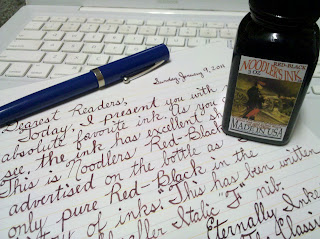 Sunday January 9, 2011
Dearest Readers,
Today, I present you with
absolute favorite ink. As you
see, the ink has excellent sh
This is Noodlers Red-Black
advertised on the bottle as
only pure Red-Black in the
of inks. This has been written
Italic "F" nib.
Eternally Inke
RED-BLACK
3 OZ
NOODLER'S INK
MADE IN USA